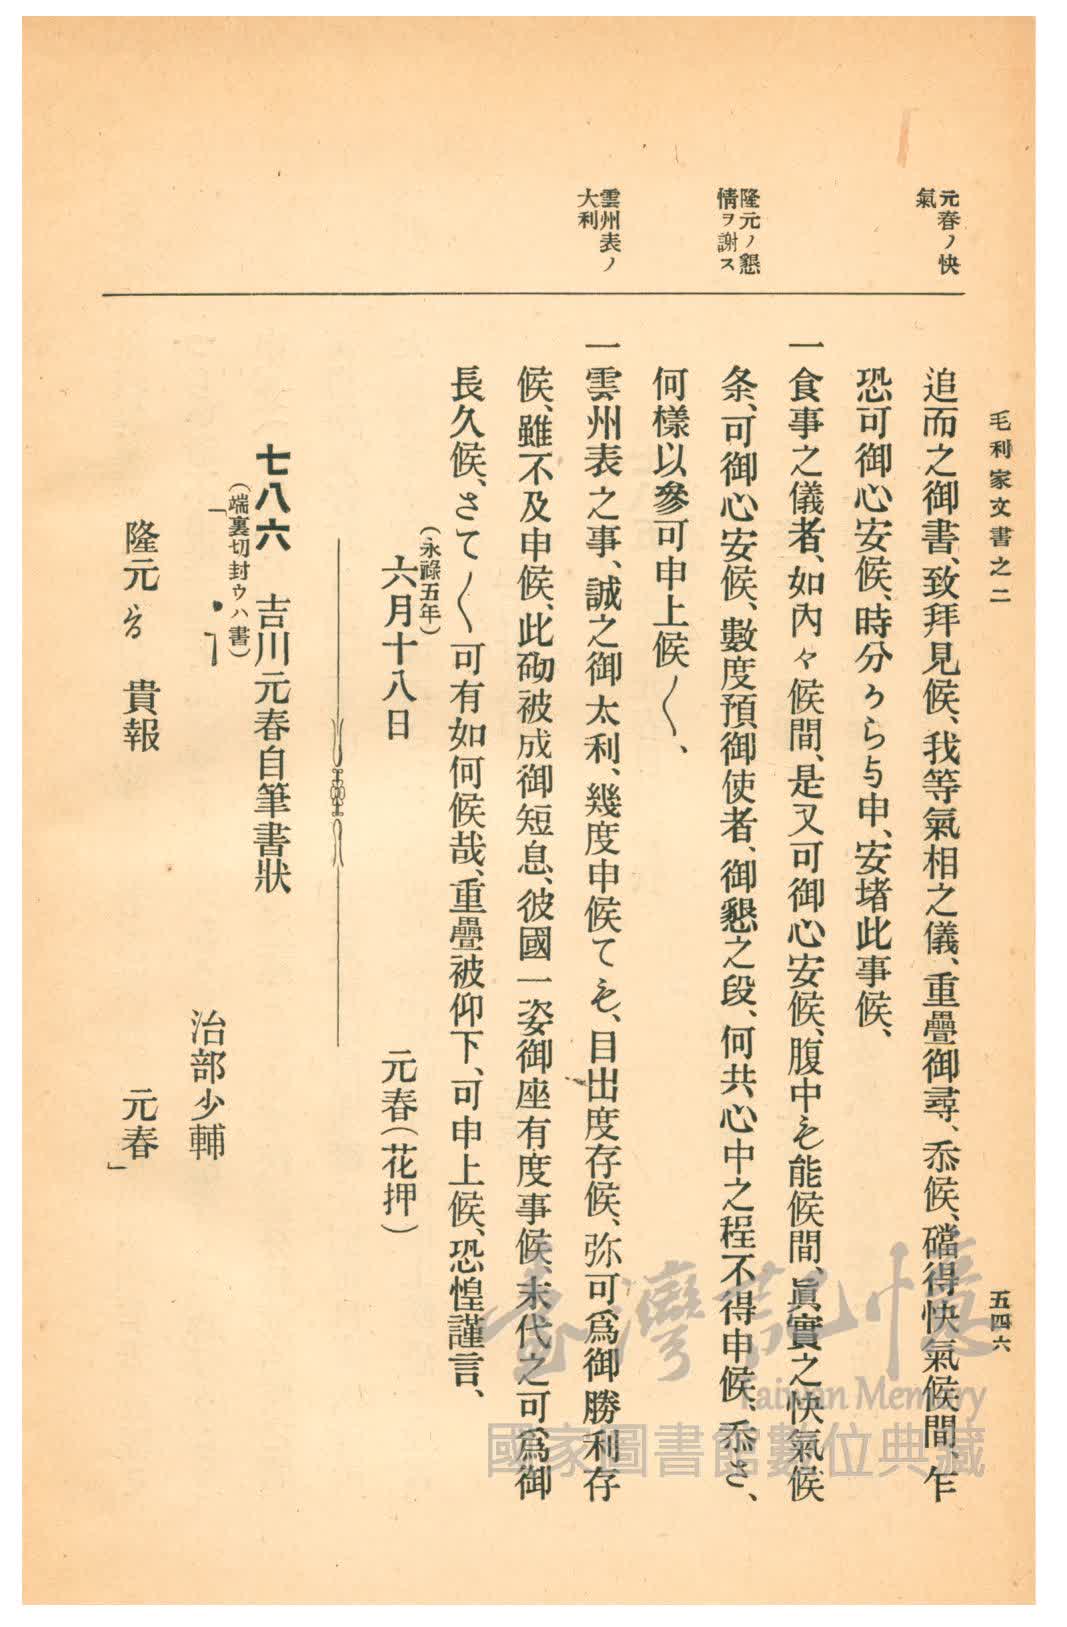 毛利家文書之二
五四六
元春ノ快
氣
隆元ノ懇
情ヲ謝ス
雲州表ノ
大利
追而之御書、致拜見候、我等氣相之儀、重疊御尋、忝候、礑得快氣候間、乍
恐可御心安候、時分うら与申、安堵此事候、
一食事之儀者、如內々候間、是又可御心安候、腹中も能候間、眞實之快氣候
条、可御心安候、數度預御使者、御懇之段、何共心中之程不得申候、忝さ、
何樣以參可申上候〱、
一雲州表之事、誠之御太利、幾度申候ても、目出度存候、弥可爲御勝利存
候、雖不及申候、此砌被成御短息、彼國一姿御座有度事候、末代之可爲御
長久候、さて〱可有如何候哉、重疊被仰下、可申上候、恐惶謹言、
(永祿五年)
六月十八日 元春(花押)
七八六 吉川元春自筆書狀
(端裏切封ウハ書)
「・ㄱ 治部少輔
隆元ゟ 貴報 元春」
臺灣記憶
Taiwan Memory
國家圖書館數位典藏